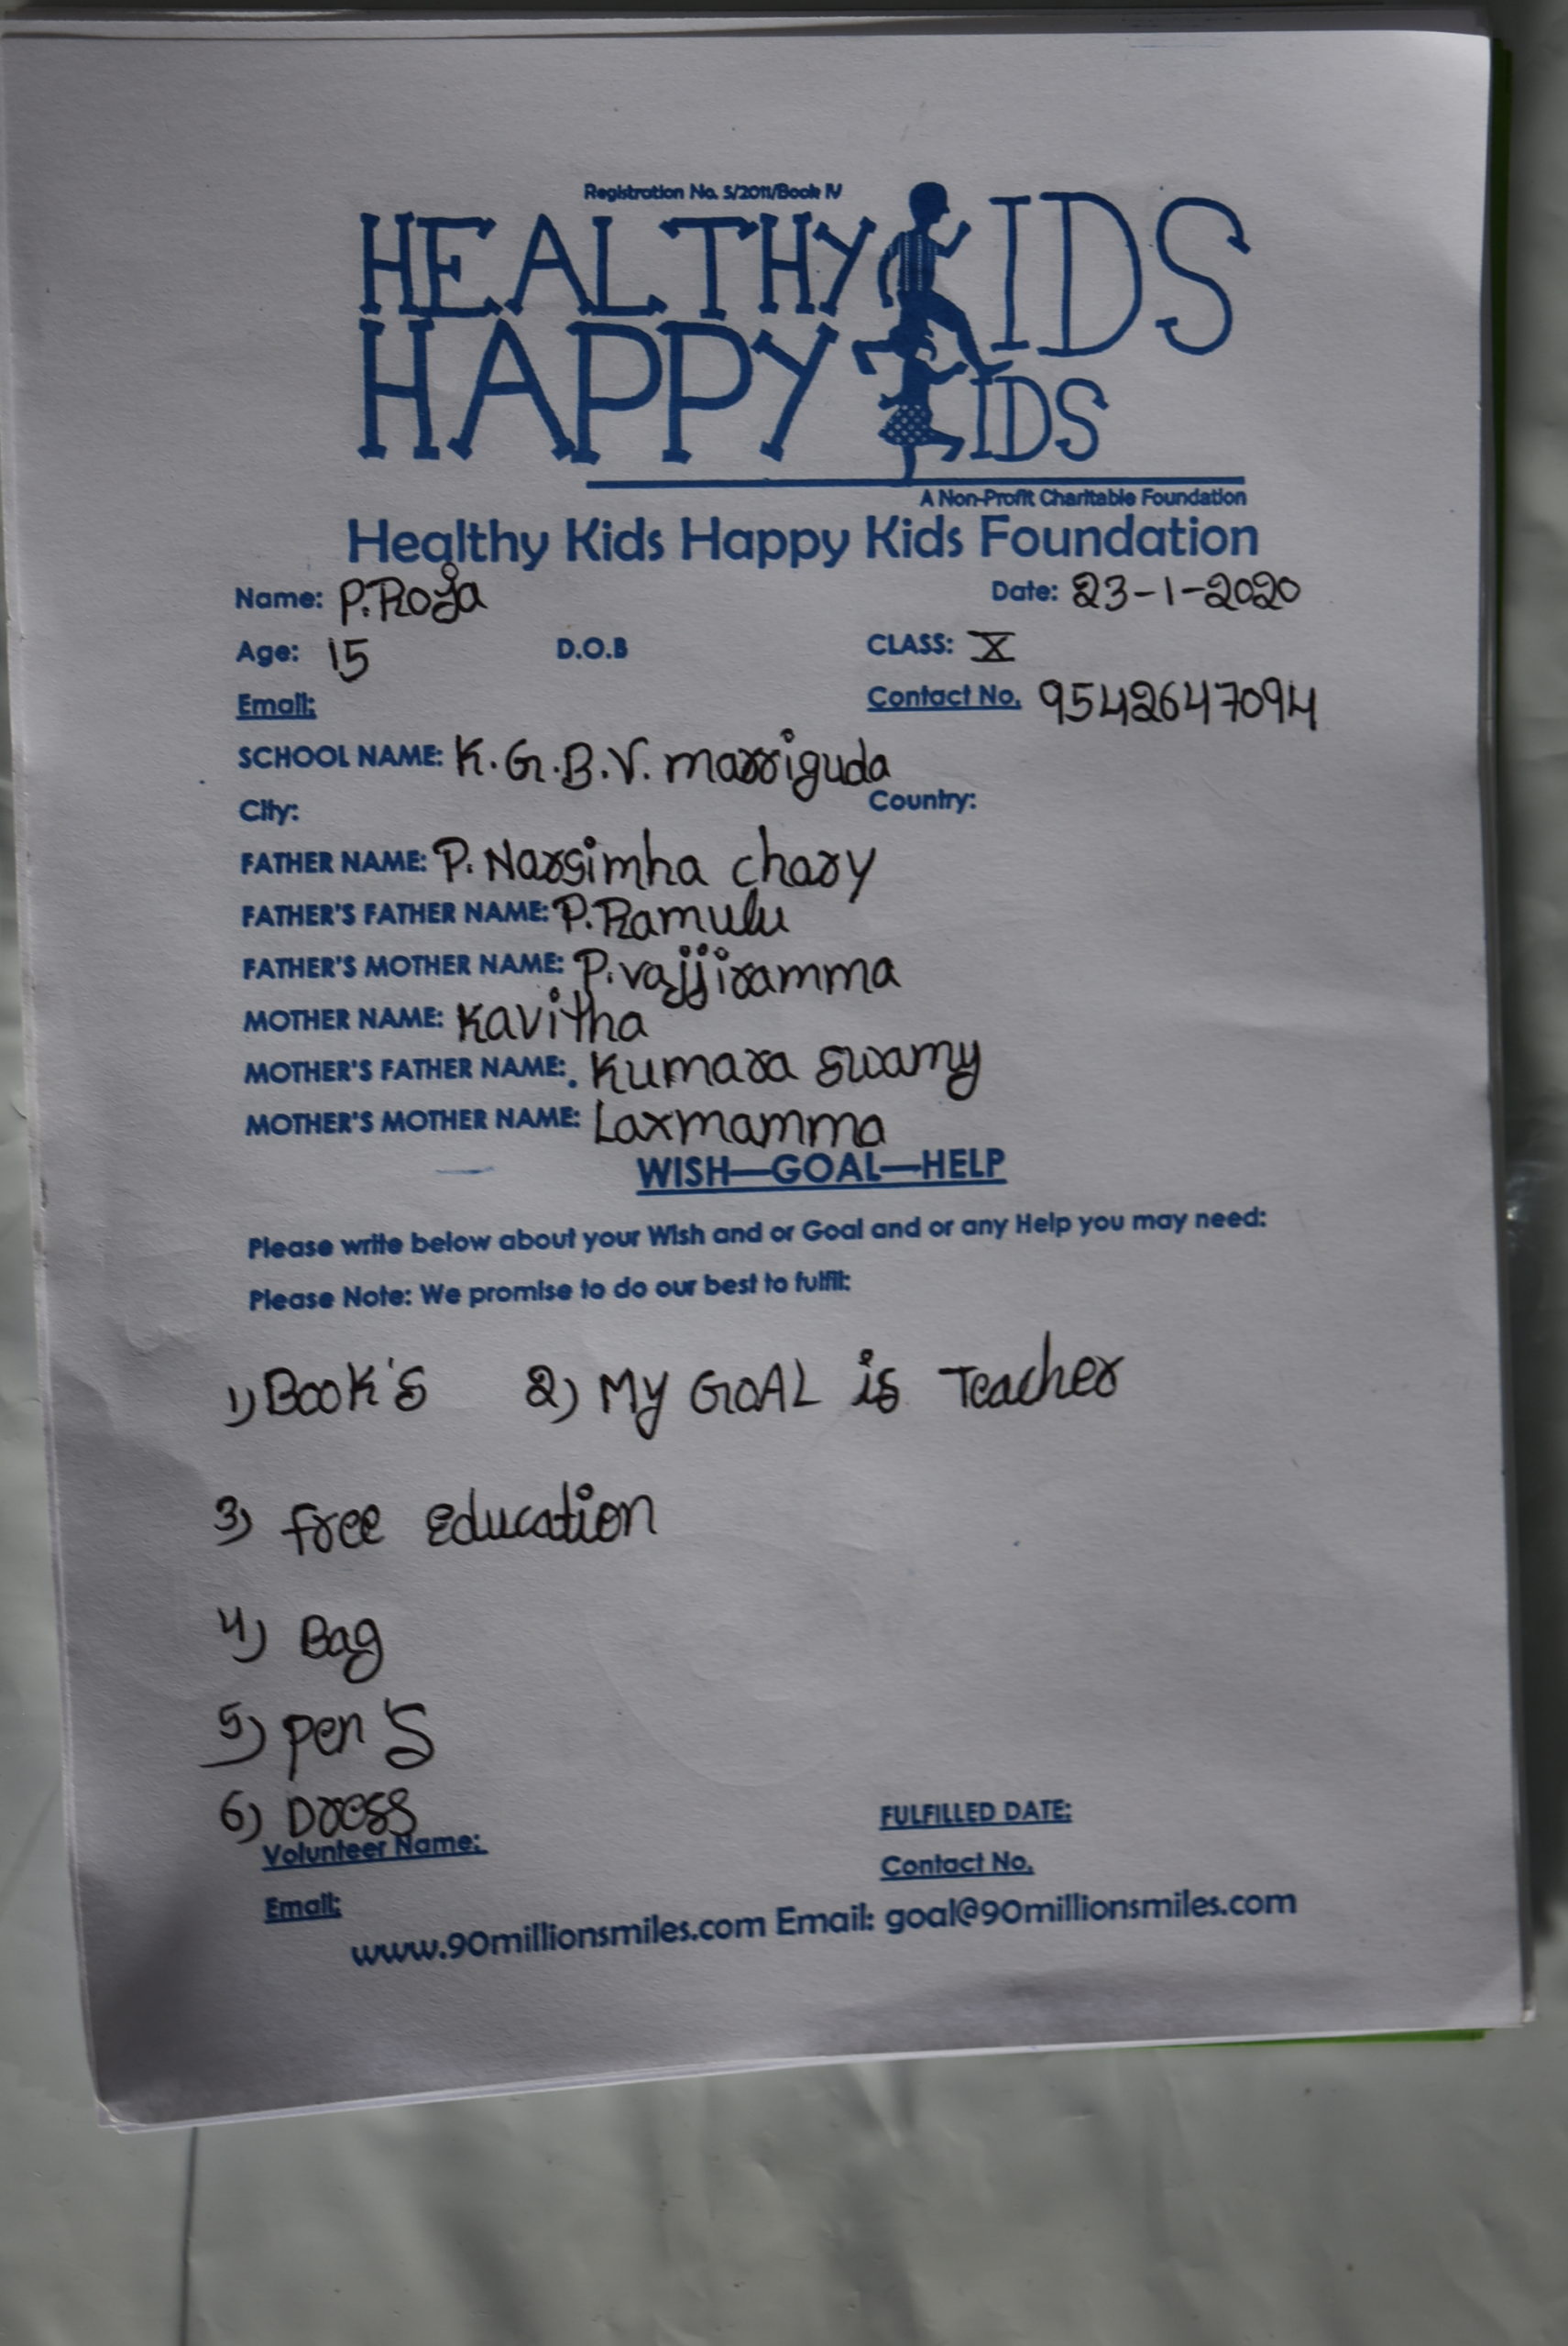 Registration No. 5/2011/Book IV
HEALTHY KIDS
HAPPY KIDS
A Non-Profit Charitable Foundation
Healthy Kids Happy Kids Foundation
Name: P.Roja Date: 23-1-2020
Age: 15 D.O.B CLASS: X
Email: Contact No. 9542647094
SCHOOL NAME: K.G.B.V. marriguda
City: Country:
FATHER NAME: P. Narsimha chary
FATHER'S FATHER NAME: P.Ramulu
FATHER'S MOTHER NAME: P.vajjiramma
MOTHER NAME: Kavitha
MOTHER'S FATHER NAME: Kumara swamy
MOTHER'S MOTHER NAME: Laxmamma
WISH—GOAL—HELP
Please write below about your Wish and or Goal and or any Help you may need:
Please Note: We promise to do our best to fulfil:
1) BooK's 2) My GOAL is Teacher
3) free Education
4) Bag
5) pen's
6) Dress
Volunteer Name: FULFILLED DATE:
Email: Contact No.
www.90millionsmiles.com Email: goal@90millionsmiles.com